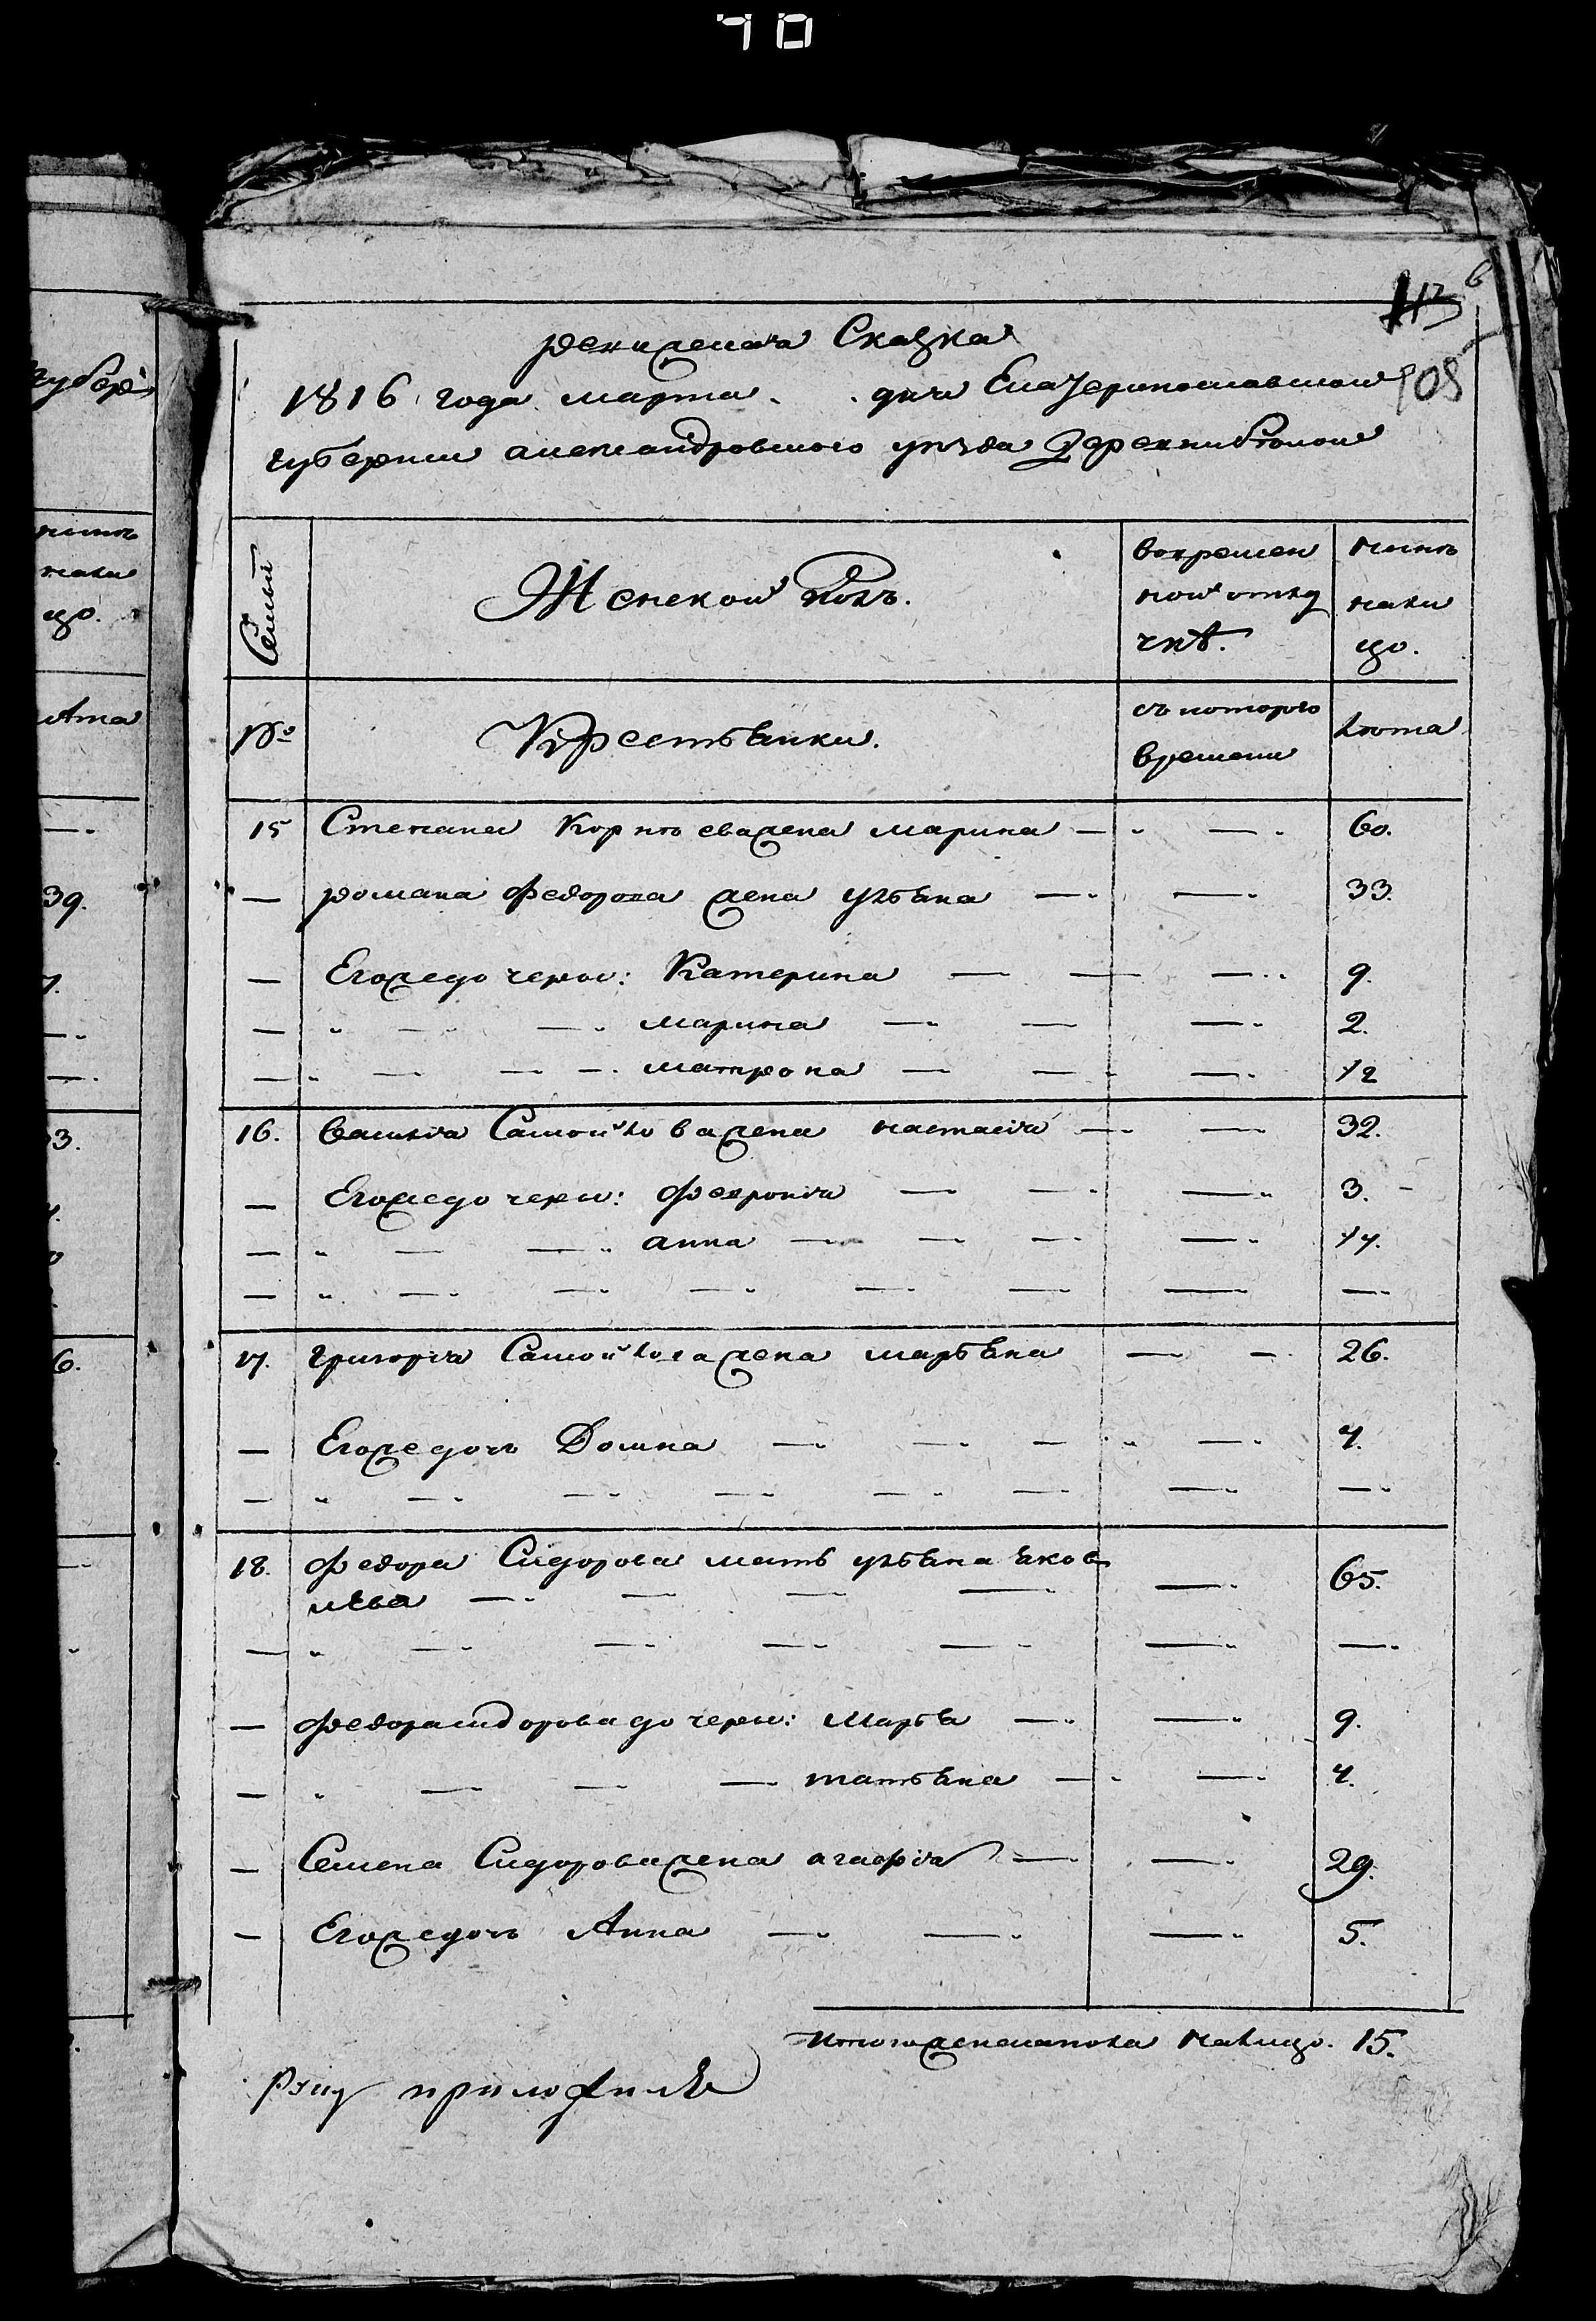 40
113 в
105
ревижская Сказка
1816 года марта дня Екатеринославской
губернии александровского уезда Деревни
губер
Семьи
Женской полъ.
вовремен
ной отлу
чкѣ.
нынѣ
нали
цо.
нынѣ
нали
цо.
№
Крестьянки.
съ которого
времени
лѣта
лѣта
15 Степана Корнѣева жена марина — 60.
— романа Федорова жена ульяна — 33.
— Егожедочери: Катерина — 9.
— марина — 2.
— матрона — 1/2
16. Василія Самойлова жена настасія — 32.
— Егожедочери: Февронія — 3.
— анна — 1/4.
17. григорія Самойлова жена марьяна — 26.
— Егожедочь Домна — 4.
18. Федора Сидорова мать ульяна яков
лѣва — 65.
— Федорасидорова дочери: марья — 9.
— татьяна — 4.
— Семена Сидорова жена агафія — 29.
— Егожедочь Анна — 5.
итого женскапола налицо. 15.
руку приложилъ